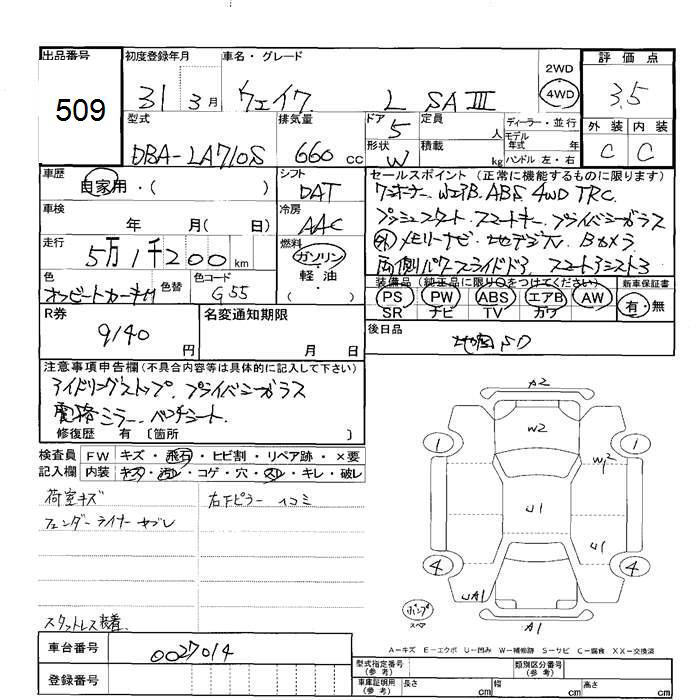 出品番号 初度登録年月 車名・グレード 評価点
509 31 3月 ウェイク L SAⅢ 2WD 4WD 3.5
型式 排気量 ドア 定員 ディーラー・並行 外装 内装
DBA-LA710S 660cc 5 人 モデル年式 年 C C
形状 積載 ハンドル 左・右
W kg
車歴 シフト セールスポイント (正常に機能するものに限ります)
自家用・( ) DAT ワンオーナー. WエアB. ABS. 4WD TRC.
車検 冷房 プッシュスタート. スマートキー. プライバシーガラス
年 月( 日) AAC 外 メモリーナビ. 地デジTV. Bカメラ
走行 燃料 両側パワースライドドア. スマートアシスト3
5万1千200km ガソリン・軽油・( )
色 色替 色コード 装備品(純正品に限り○をつけてください) 新車保証書
G55 PS PW ABS エアB AW 有・無
SR ナビ TV カワ
R券 名変通知期限 後日品
9140円 月 日 地図SD
注意事項申告欄(不具合内容等は具体的に記入して下さい)
アイドリングストップ. プライバシーガラス
電格ミラー. ベンチシート.
修復歴 有 〔箇所 〕
検査員 FW キズ・飛石・ヒビ割・リペア跡・×要
記入欄 内装 キズ・汚レ・コゲ・穴・スレ・キレ・破レ
荷室キズ 右下ピラー凹コミ
フェンダーライナーヤブレ
スタットレス装着.
A2
W2
1 1
W2
U1
U1
4 4
UA1
パンプ
スペア
A1
A-キズ E-エクボ U-凹み W-補修跡 S-サビ C-腐食 XX-交換済
車台番号 0027014
登録番号
型式指定番号(参考) 類別区分番号(参考)
車庫証明用(参考) 長さ cm 幅 cm 高さ cm